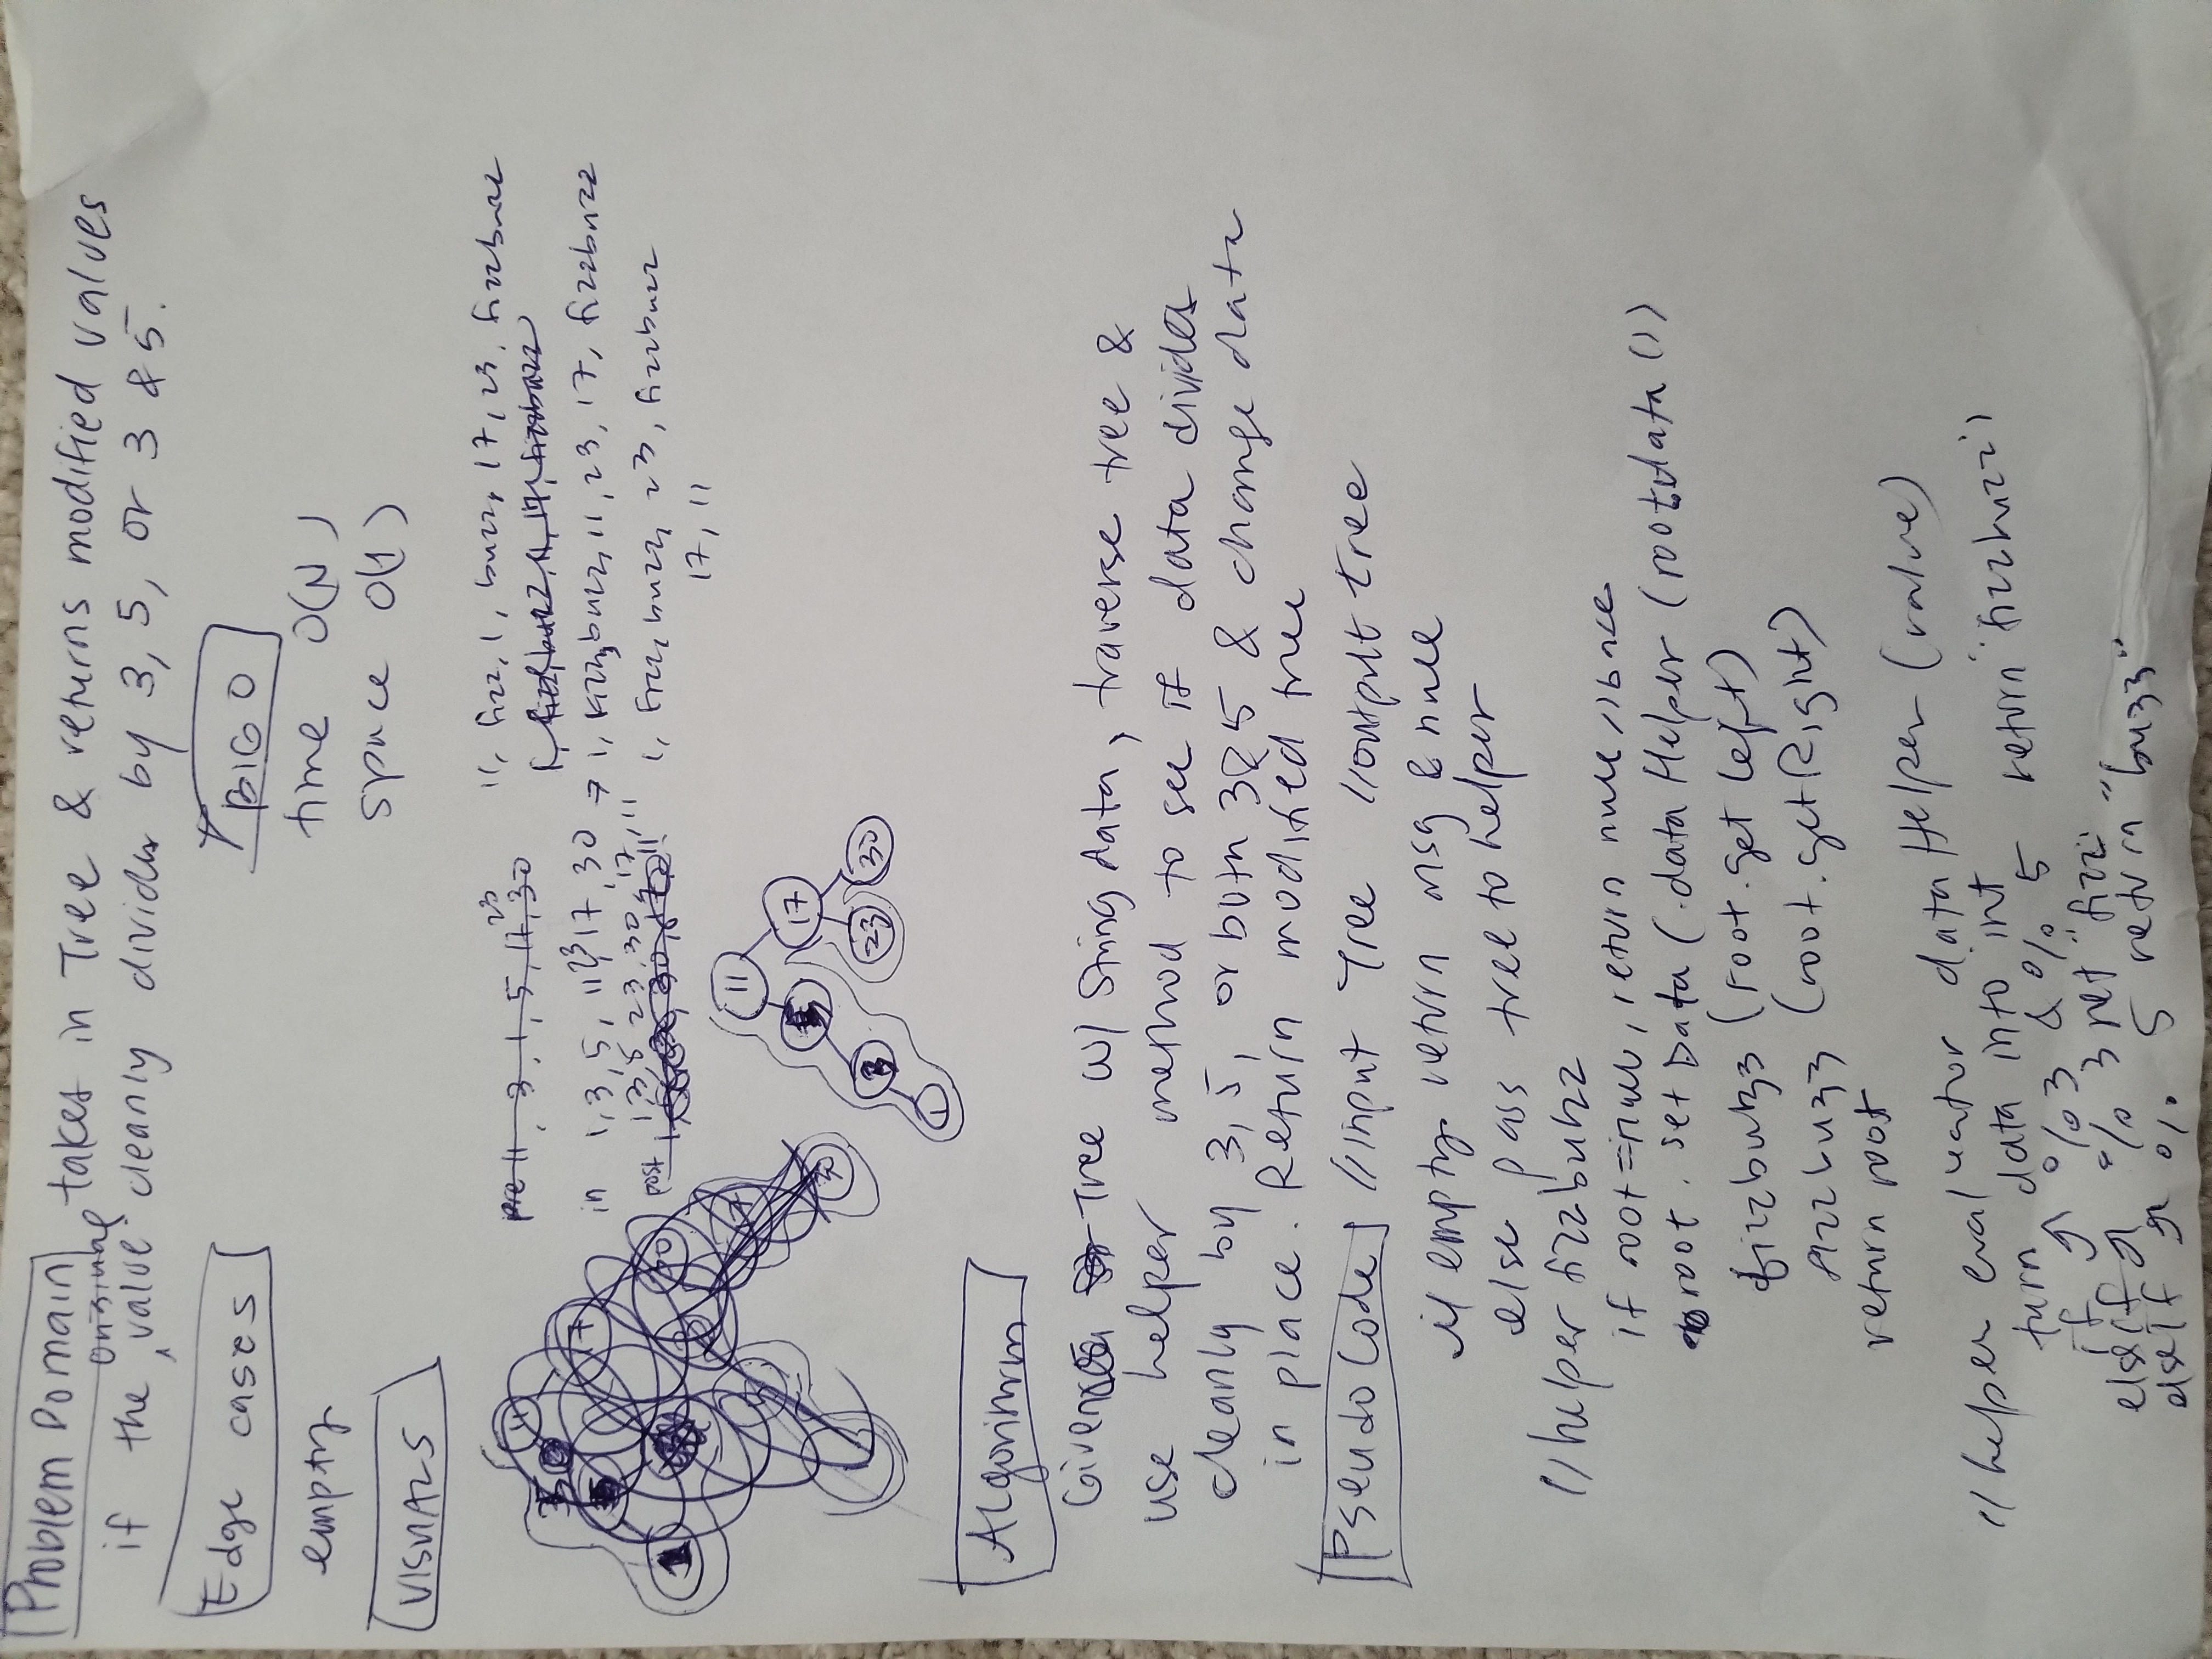 Problem Domain takes in Tree & returns modified values
if the original value cleanly divides by 3, 5, or 3 & 5.
Edge cases
empty
BIG O
time O(N)
space O(1)
VISUALS
pre 11, 3, 1, 5, 17, 23, 30
11, fizz, 1, buzz, 17, 23, fizzbuzz
1, fizz, buzz, 11, 17, fizzbuzz
in 1, 3, 5, 11, 23, 17, 30 → 1, fizz, buzz, 11, 23, 17, fizzbuzz
post 1, 3, 5, 23, 30, 17, 11
1, fizz, buzz, 23, fizzbuzz
17, 11
11
17
30
1
30
11
5 17
3 23 30
1
Algorithm
Given Tree w/ String data, traverse tree &
use helper method to see if data divides
cleanly by 3, 5, or both 3 & 5 & change data
in place. Return modified tree
Pseudo Code //input Tree //output tree
if empty return msg & null
else pass tree to helper
//helper fizzbuzz
if root = null, return null //base
root.setData(.dataHelper(root.data())
fizzbuzz (root.getLeft)
fizzbuzz (root.getRight)
return root
//helper evaluator dataHelper (value)
turn data into int
if ↗ %3 & % 5 return "fizzbuzz"
else if ↗ % 3 ret "fizz"
else if ↗ % 5 return "buzz"